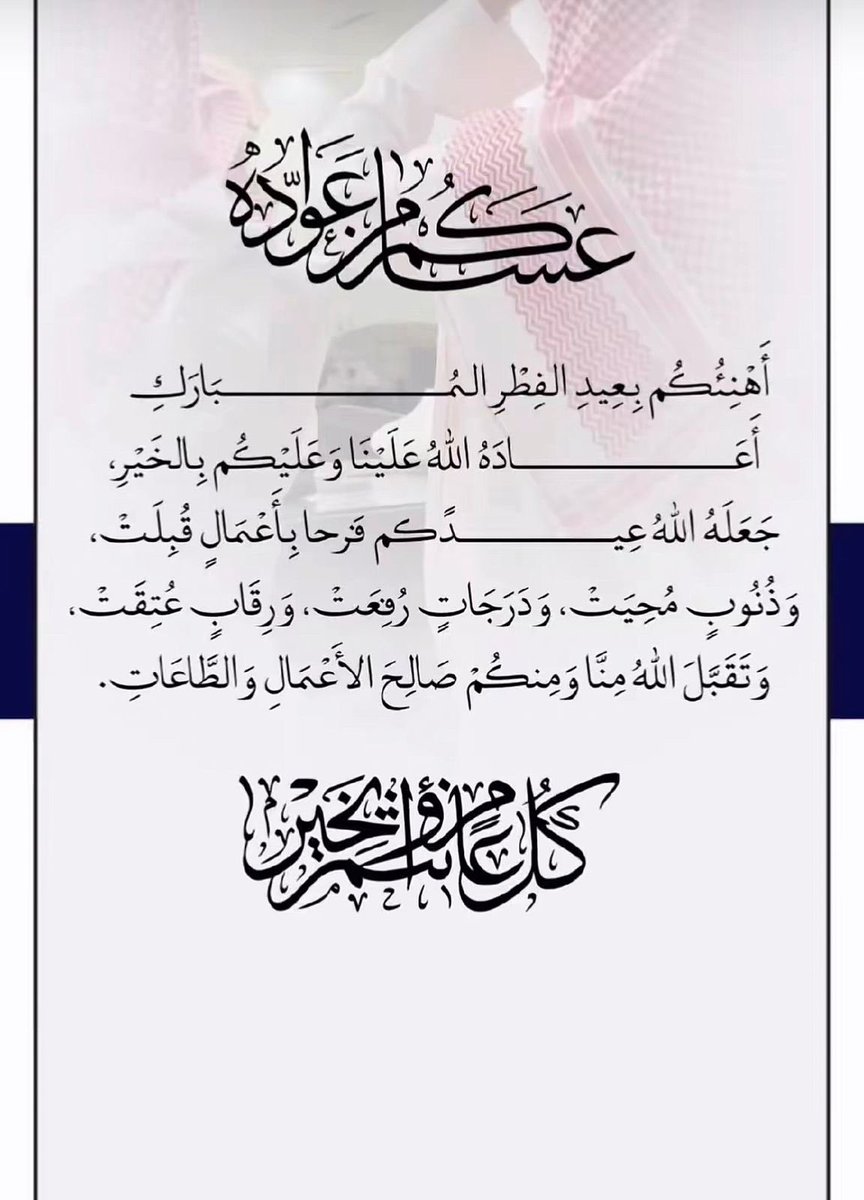 عساكم من عوّاده
أَهْنِئُكُم بِعِيدِ الفِطْرِ المُبَارَكِ
أَعَادَهُ اللهُ عَلَيْنَا وَعَلَيْكُم بِالخَيْرِ،
جَعَلَهُ اللهُ عِيدًكم فَرحا بِأَعْمَالٍ قُبِلَتْ،
وَذُنُوبٍ مُحِيَتْ، وَدَرَجَاتٍ رُفِعَتْ، وَرِقَابٍ عُتِقَتْ،
وَتَقَبَّلَ اللهُ مِنَّا وَمِنكُمْ صَالِحَ الأَعْمَالِ وَالطَّاعَاتِ.
كُل عامٍ وأنتم بخيْر